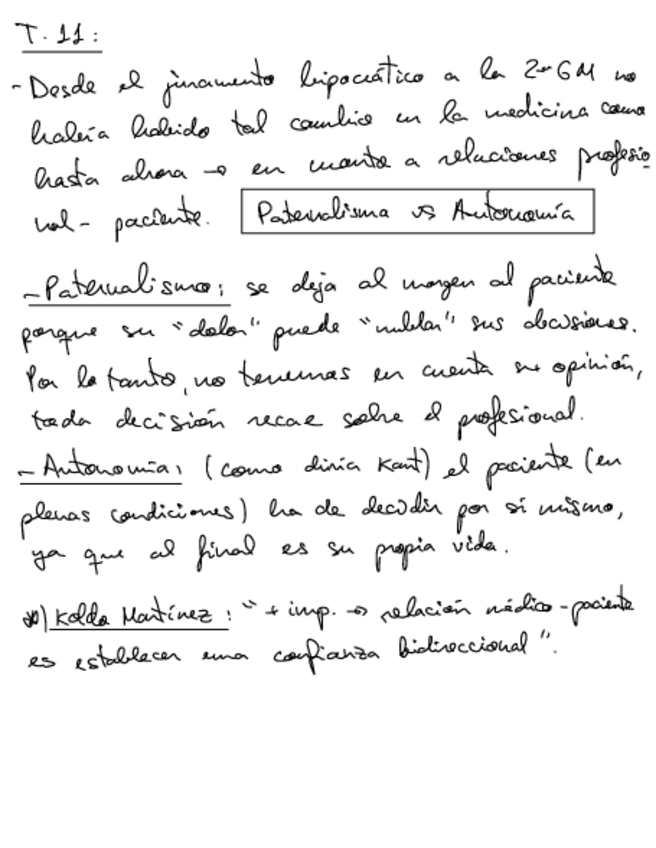 T. 11:
- Desde el juramento hipocrático a la 2ª GM no
había habido tal cambio en la medicina como
hasta ahora → en cuanto a relaciones profesio
nal - paciente. Paternalismo vs Autonomía
- Paternalismo: se deja al margen al paciente
porque su "dolor" puede "nublar" sus decisiones.
Por lo tanto, no tenemos en cuenta su opinión,
toda decisión recae sobre el profesional.
- Autonomía: (como diría Kant) el paciente (en
plenas condiciones) ha de decidir por sí mismo,
ya que al final es su propia vida.
*) Koldo Martínez: " + imp. → relación médico - paciente
es establecer una confianza bidireccional".